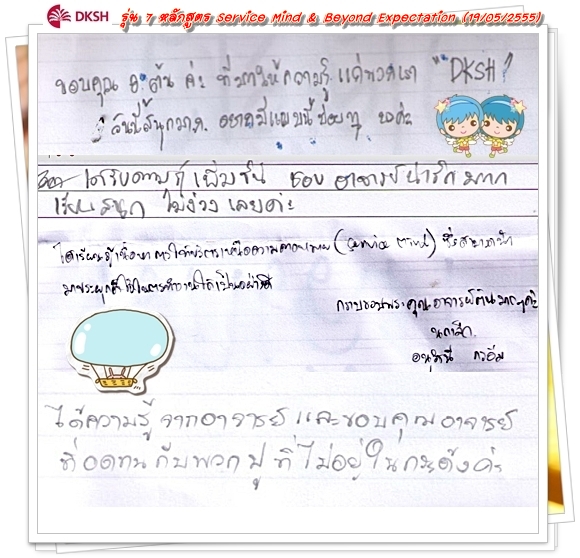 DKSH รุ่น 7 หลักสูตร Service Mind & Beyond Expectation (19/05/2555)
ขอบคุณ อ.ต้น ค่ะ ที่มาให้ความรู้ แก่พวกเรา "DKSH!
วันนี้สนุกมาก อยากมีแบบนี้บ่อยๆ นะค่ะ
ได้รับความรู้ เพิ่มขึ้น ชอบ อาจารย์น่ารักมาก
เรียนสนุก ไม่ง่วงเลยค่ะ
ได้เรียนรู้เนื้อหา การให้บริการเหนือความคาดหมาย (Service Mind) ซึ่งสามารถนำ
มาประยุกต์ใช้ในการทำงานได้เป็นอย่างดี
กราบขอบพระคุณอาจารย์ต้นมากๆค่ะ
ได้ความรู้จากอาจารย์ และขอบคุณอาจารย์
ที่อดทนกับพวกปูที่ไม่อยู่ในกะดังค่ะ